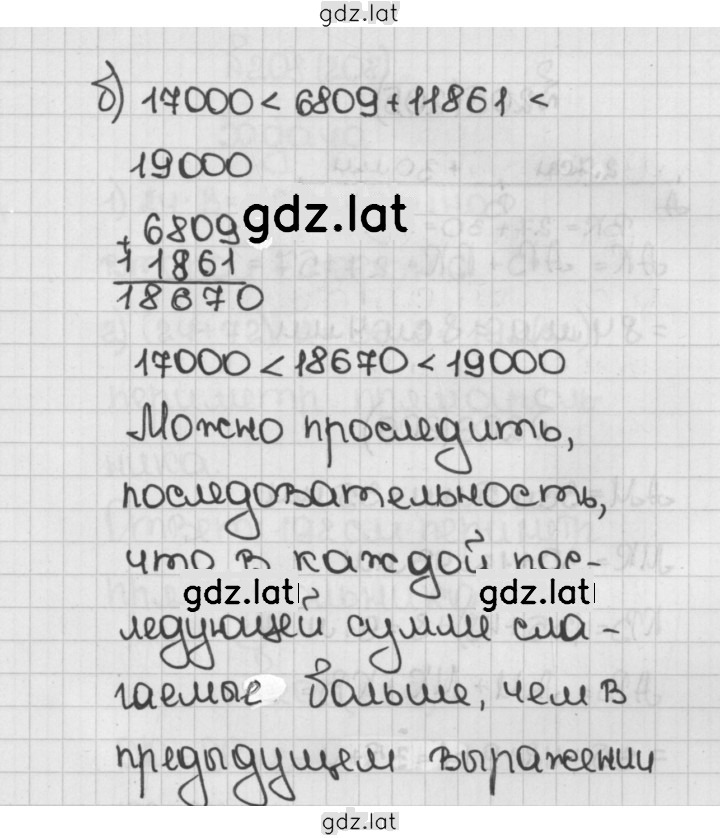 gdz.lat
б) 17000 < 6809 + 11861 <
19000
+ 6809
gdz.lat
11861
18670
17000 < 18670 < 19000
Можно проследить,
последовательность,
что в каждой пос-
gdz.lat gdz.lat
ледующей сумме сла-
гаемые больше, чем в
предыдущем выражении
gdz.lat